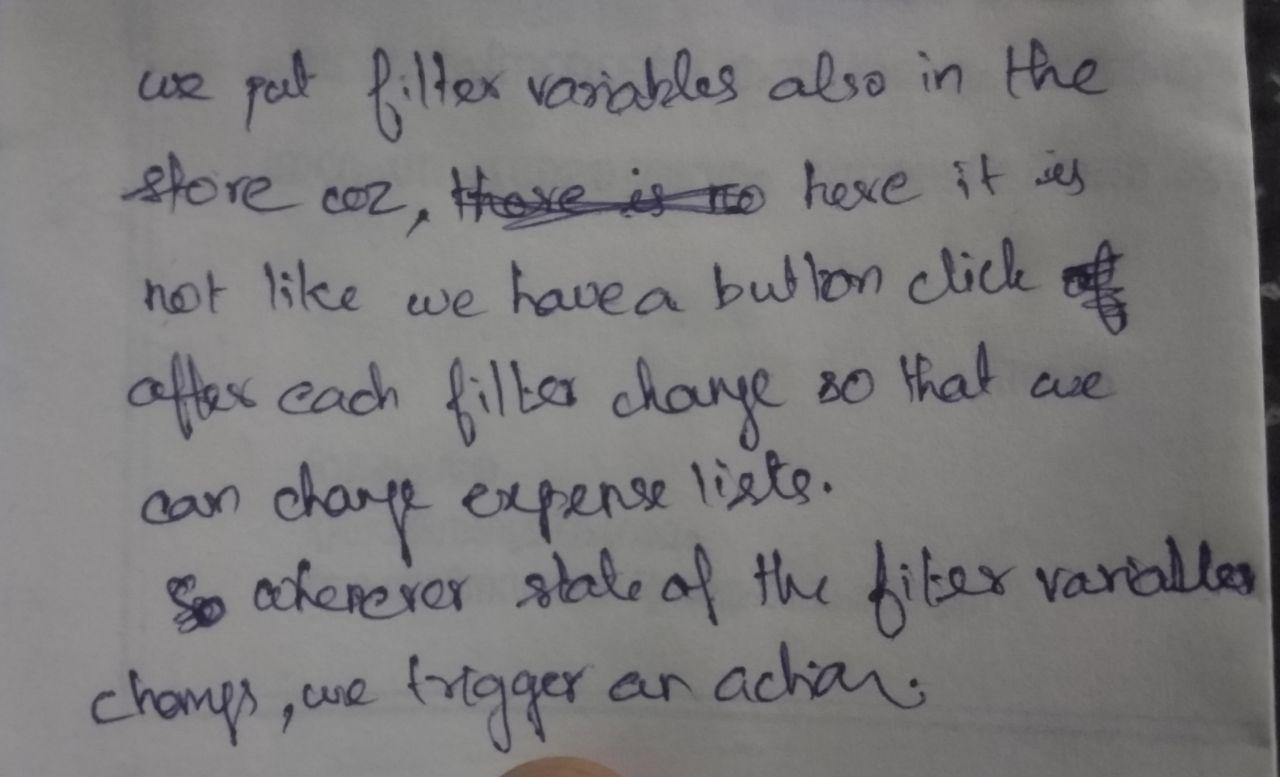 we put filter variables also in the
store coz, there is no here it is
not like we have a button click of
after each filter change so that we
can change expense lists.
So whenever state of the filter variables
changes, we trigger an action.